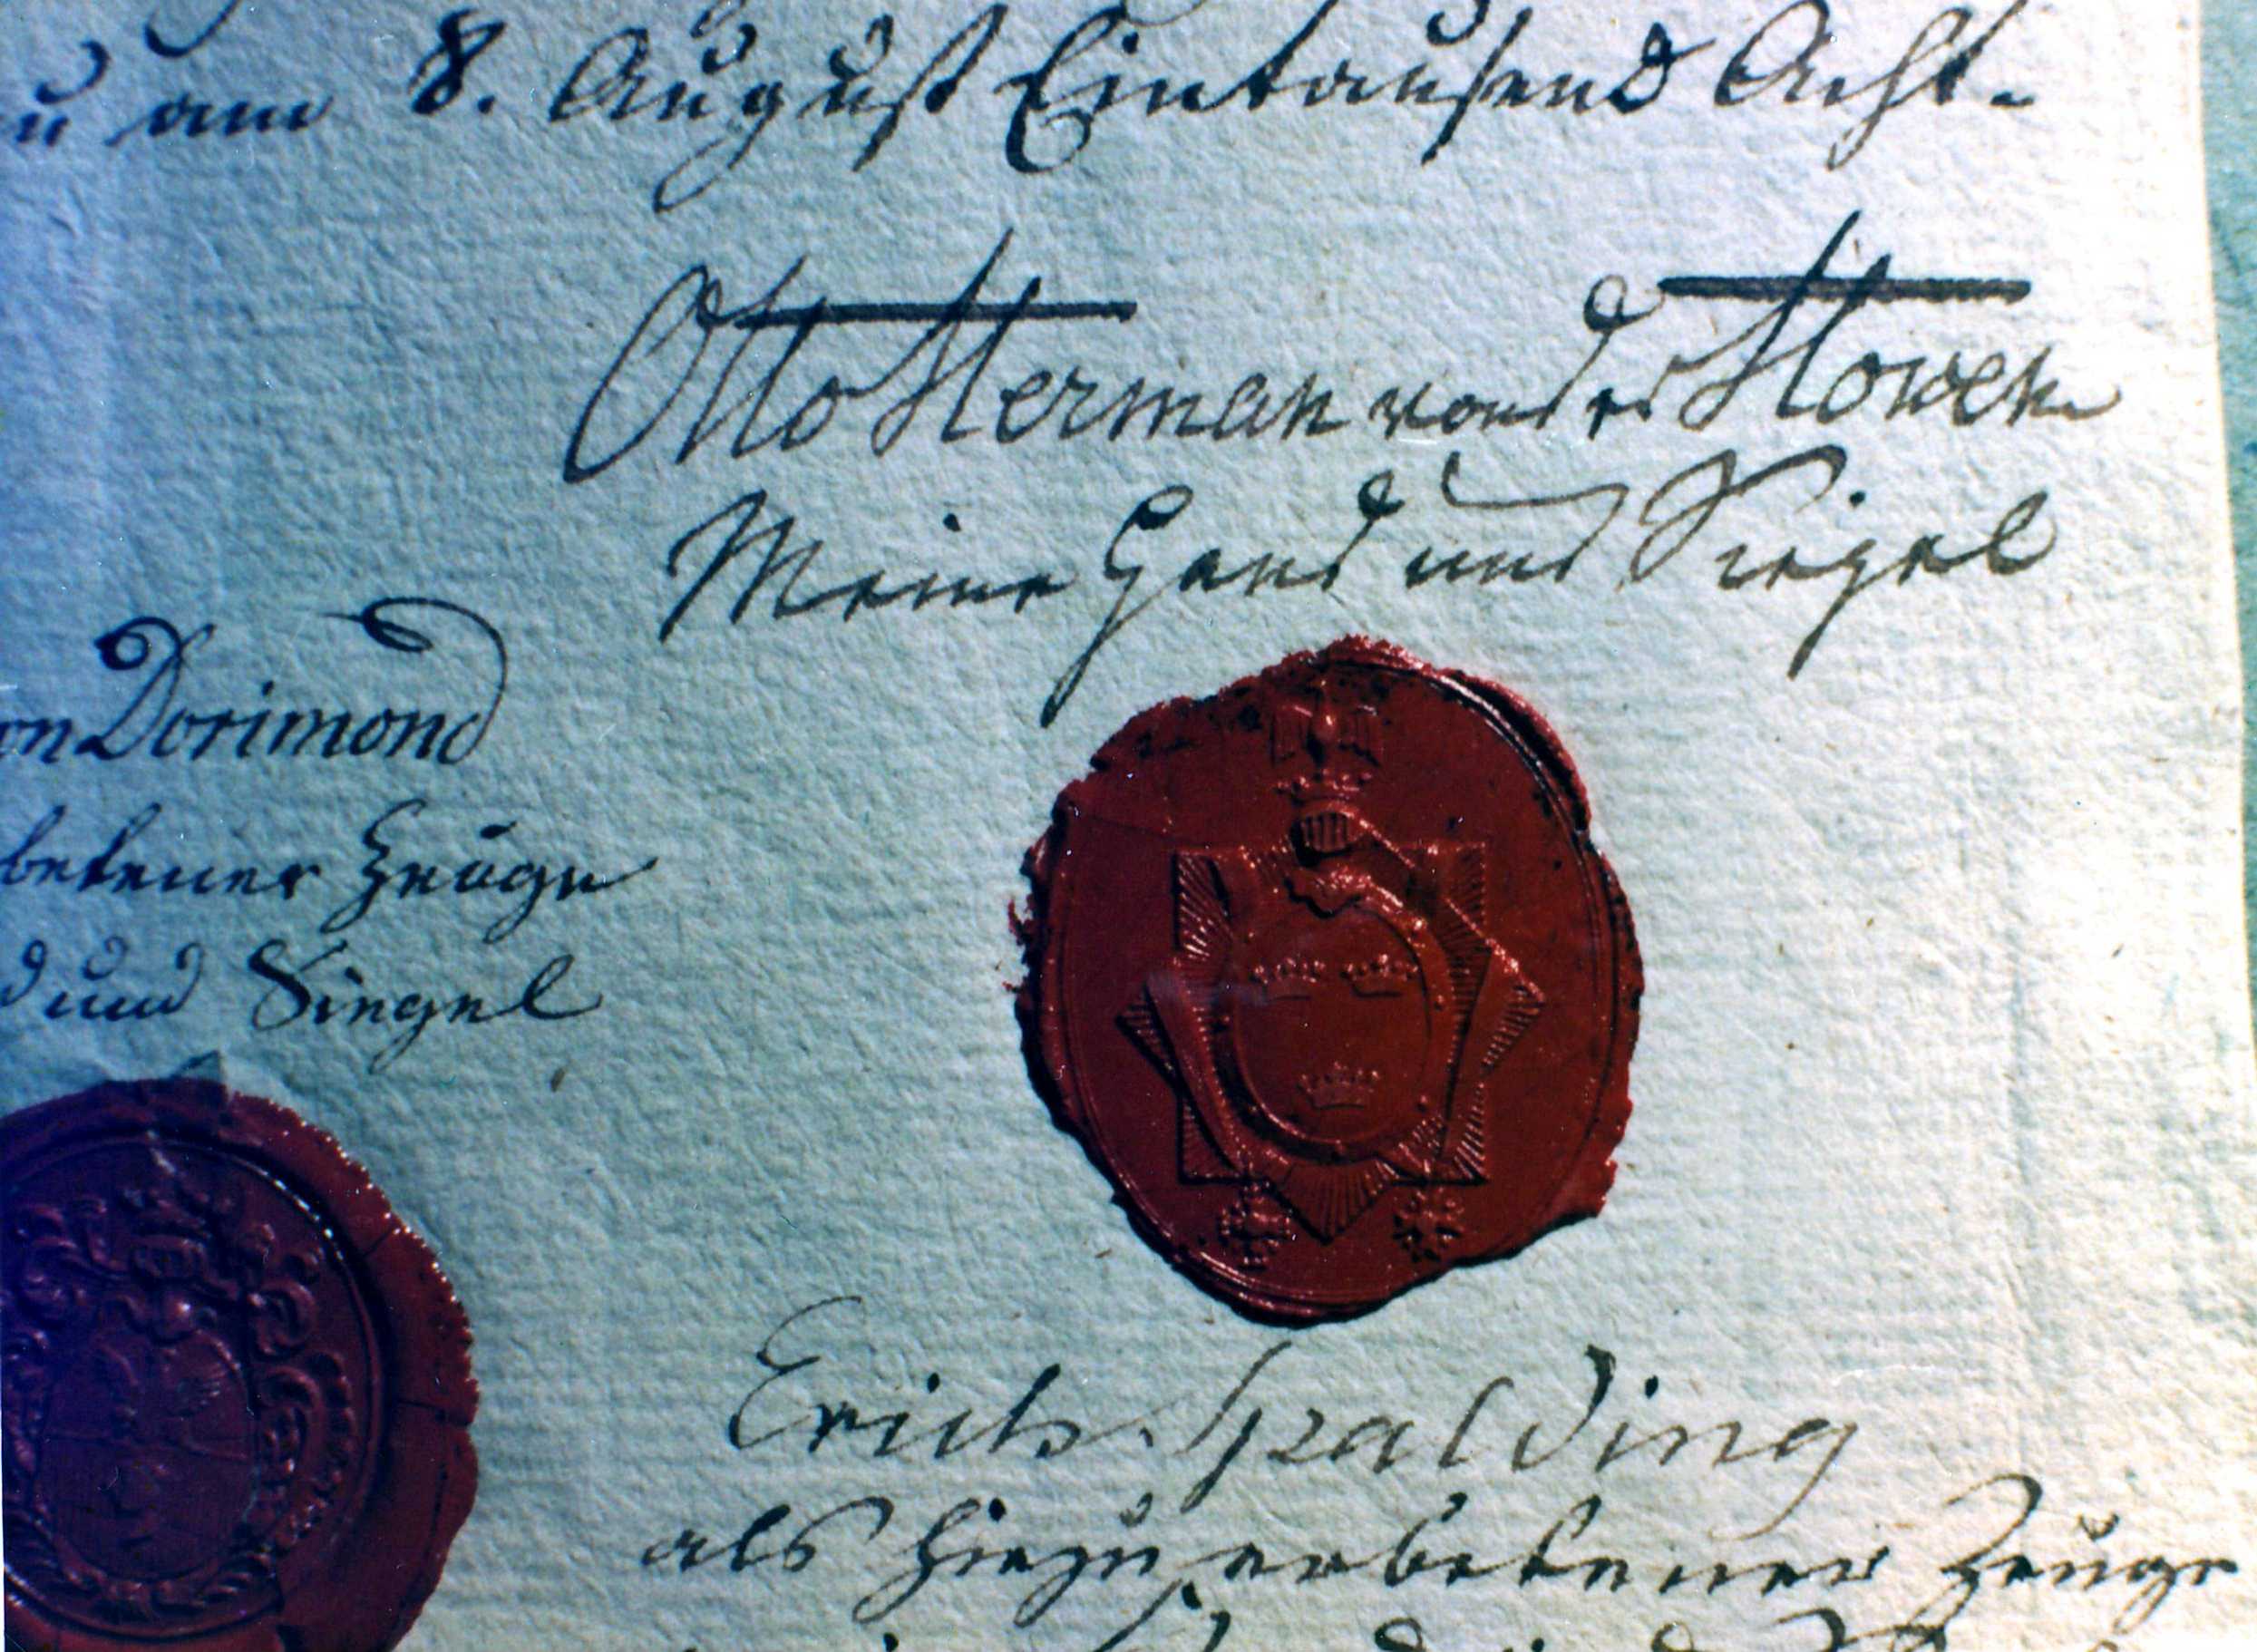 am 8. August Eintausend Acht-
Otto Herman von der Howen
Meine Hand und Siegel
Dorimond
betener Zeuge
d und Siegel
Erich Spalding
als hiezu erbetener Zeuge